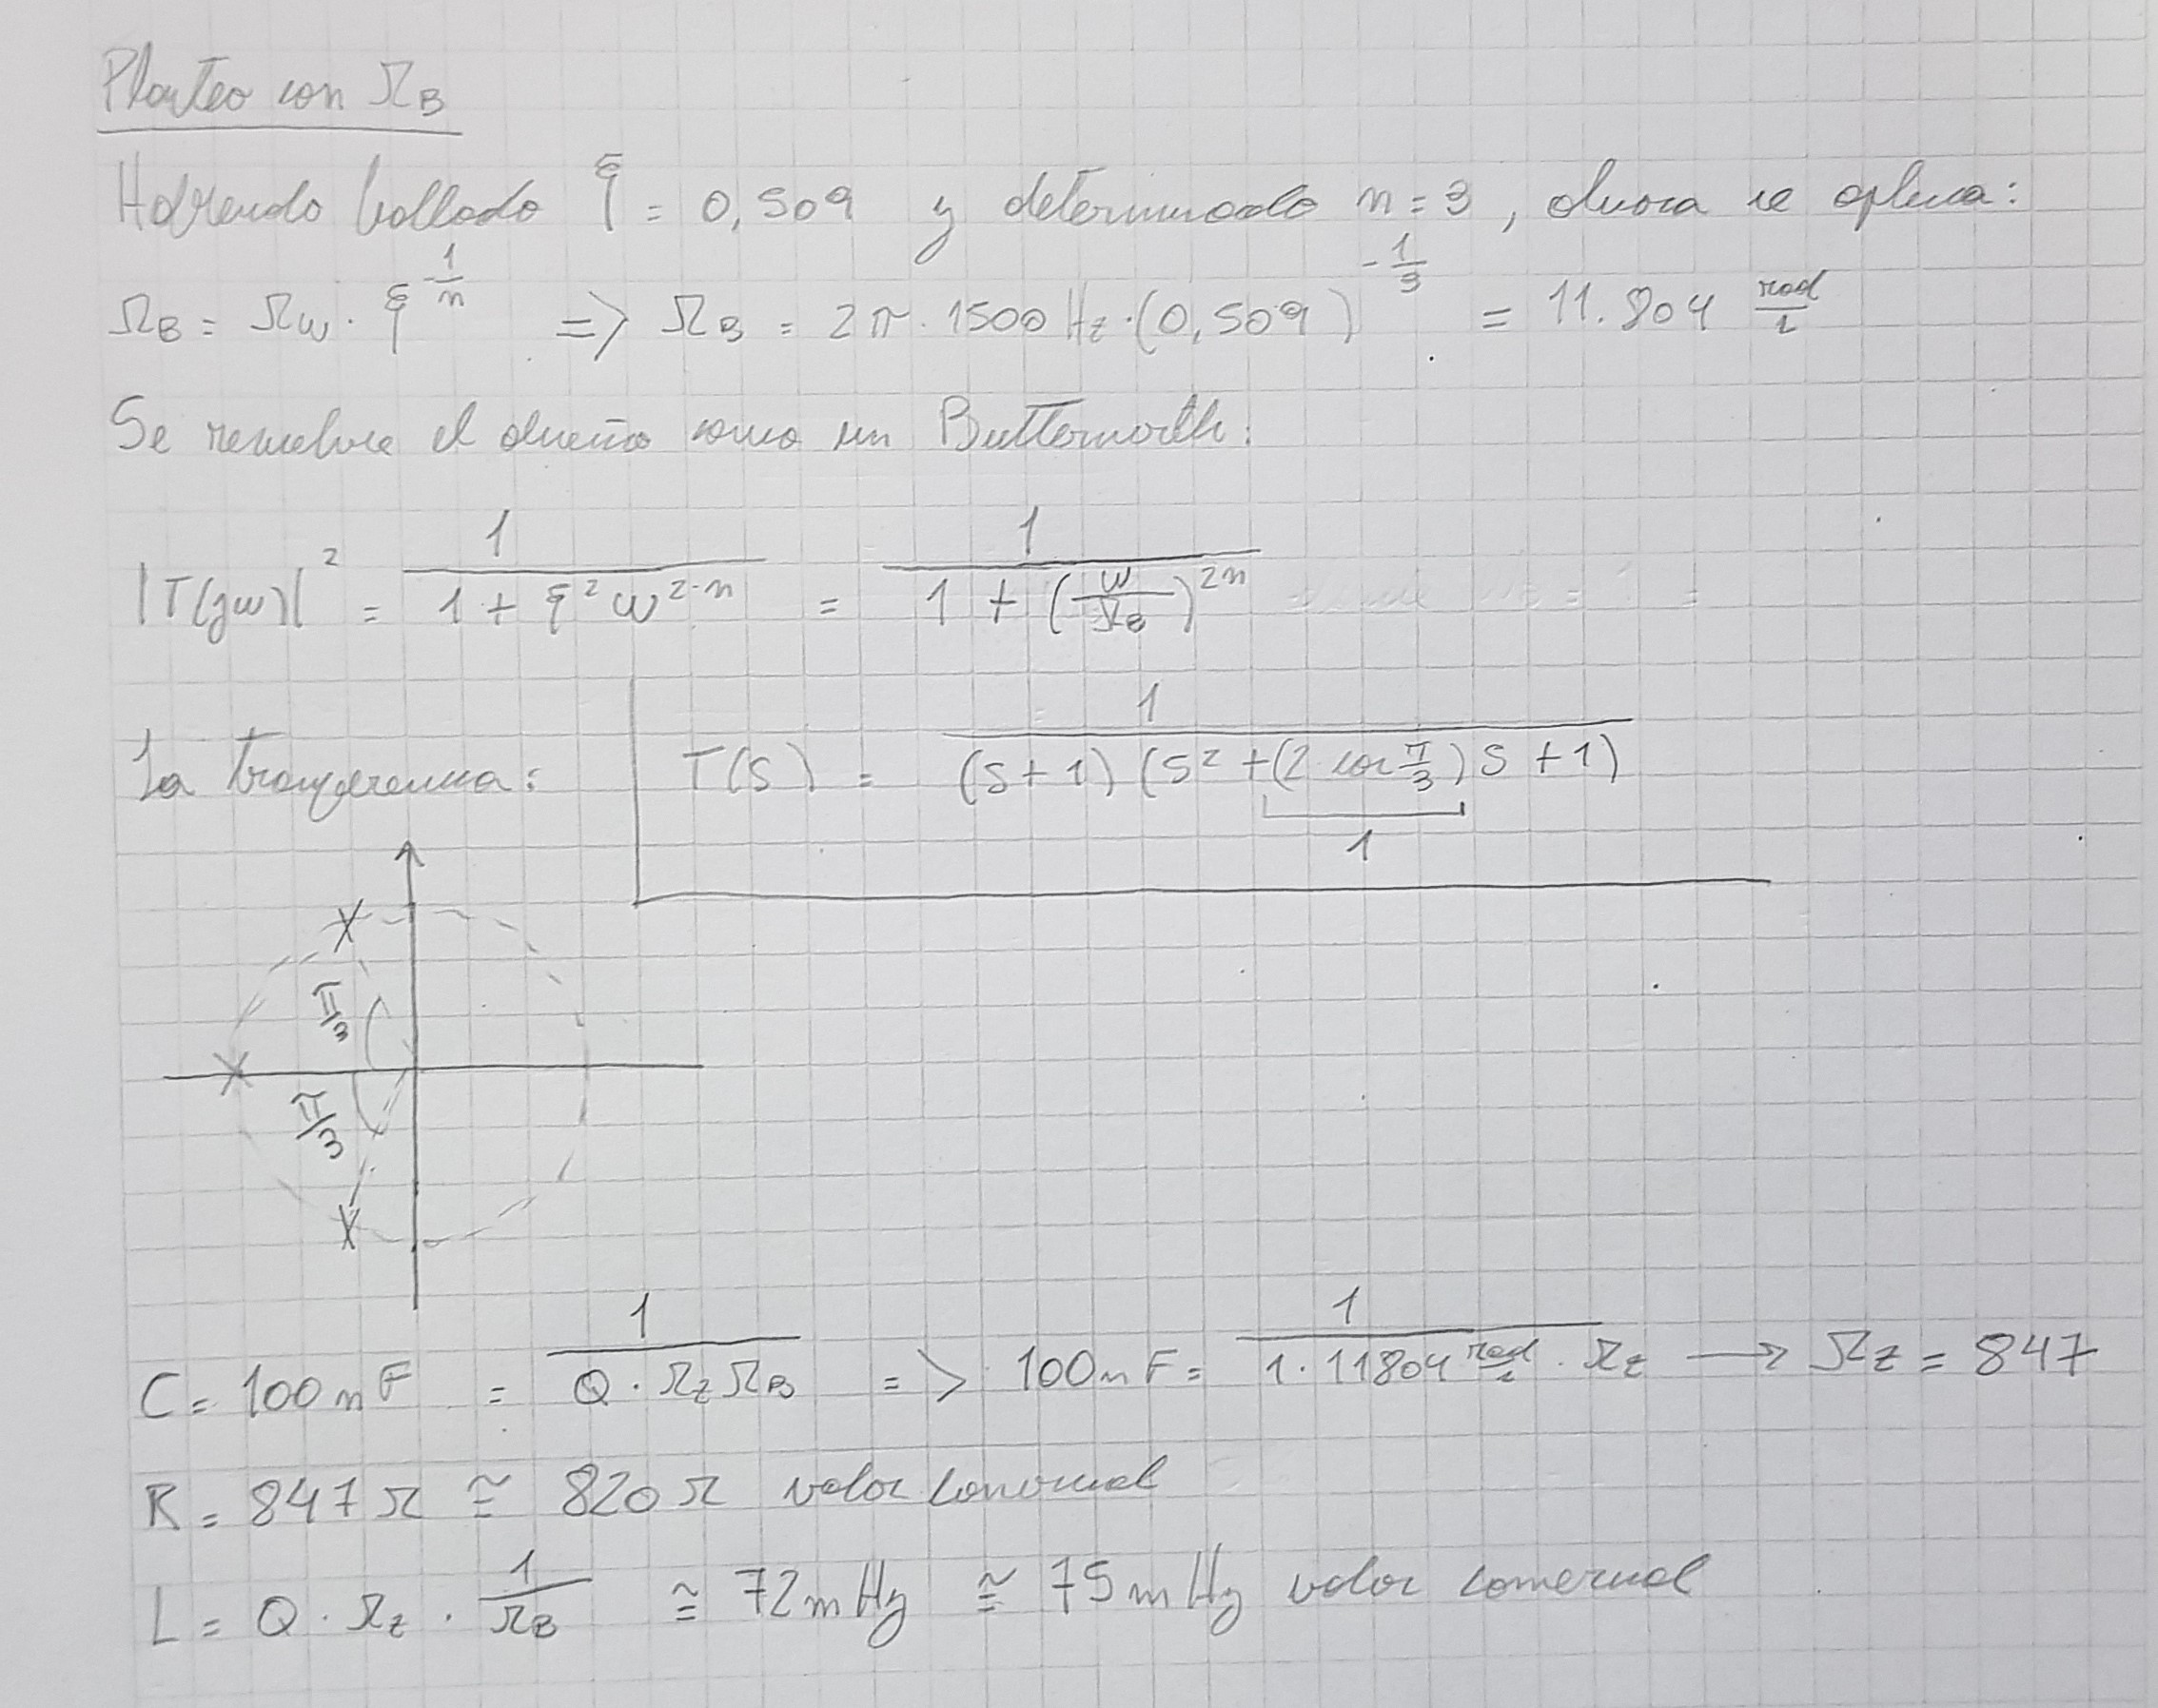 Planteo con Ω_B
Habiendo hallado ξ = 0,509 y determinado n = 3, ahora se aplica:
Ω_B = Ω_W · ξ^(-1/n) => Ω_B = 2π · 1500 Hz · (0,509)^(-1/3) = 11.804 rad/s
Se resuelve el diseño como un Butterworth:
|T(jw)|² = 1/(1 + ξ² w^(2·n)) = 1/(1 + (w/Ω_B)^(2n))
La transferencia: T(S) = 1/((S + 1) (S² + (2 cos π/3) S + 1))
1
π/3
π/3
C = 100 nF = 1/(Q · Ω_Z Ω_B) => 100 nF = 1/(1 · 11804 rad/s · Ω_Z) → Ω_Z = 847
R = 847 Ω ≅ 820 Ω valor comercial
L = Q · Ω_Z · 1/Ω_B ≅ 72 mHy ≅ 75 mHy valor comercial